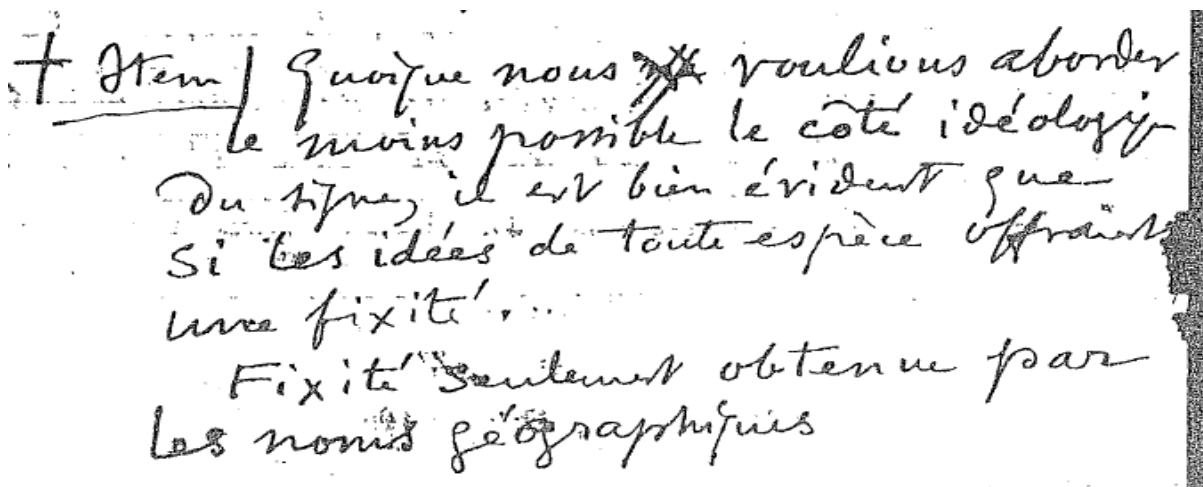 + Item | Quoique nous voulions aborder
le moins possible le côté idéologiq
du signe, il est bien évident que
si les idées de toute espèce offraient
une fixité...
Fixité seulement obtenue par
les noms géographiques